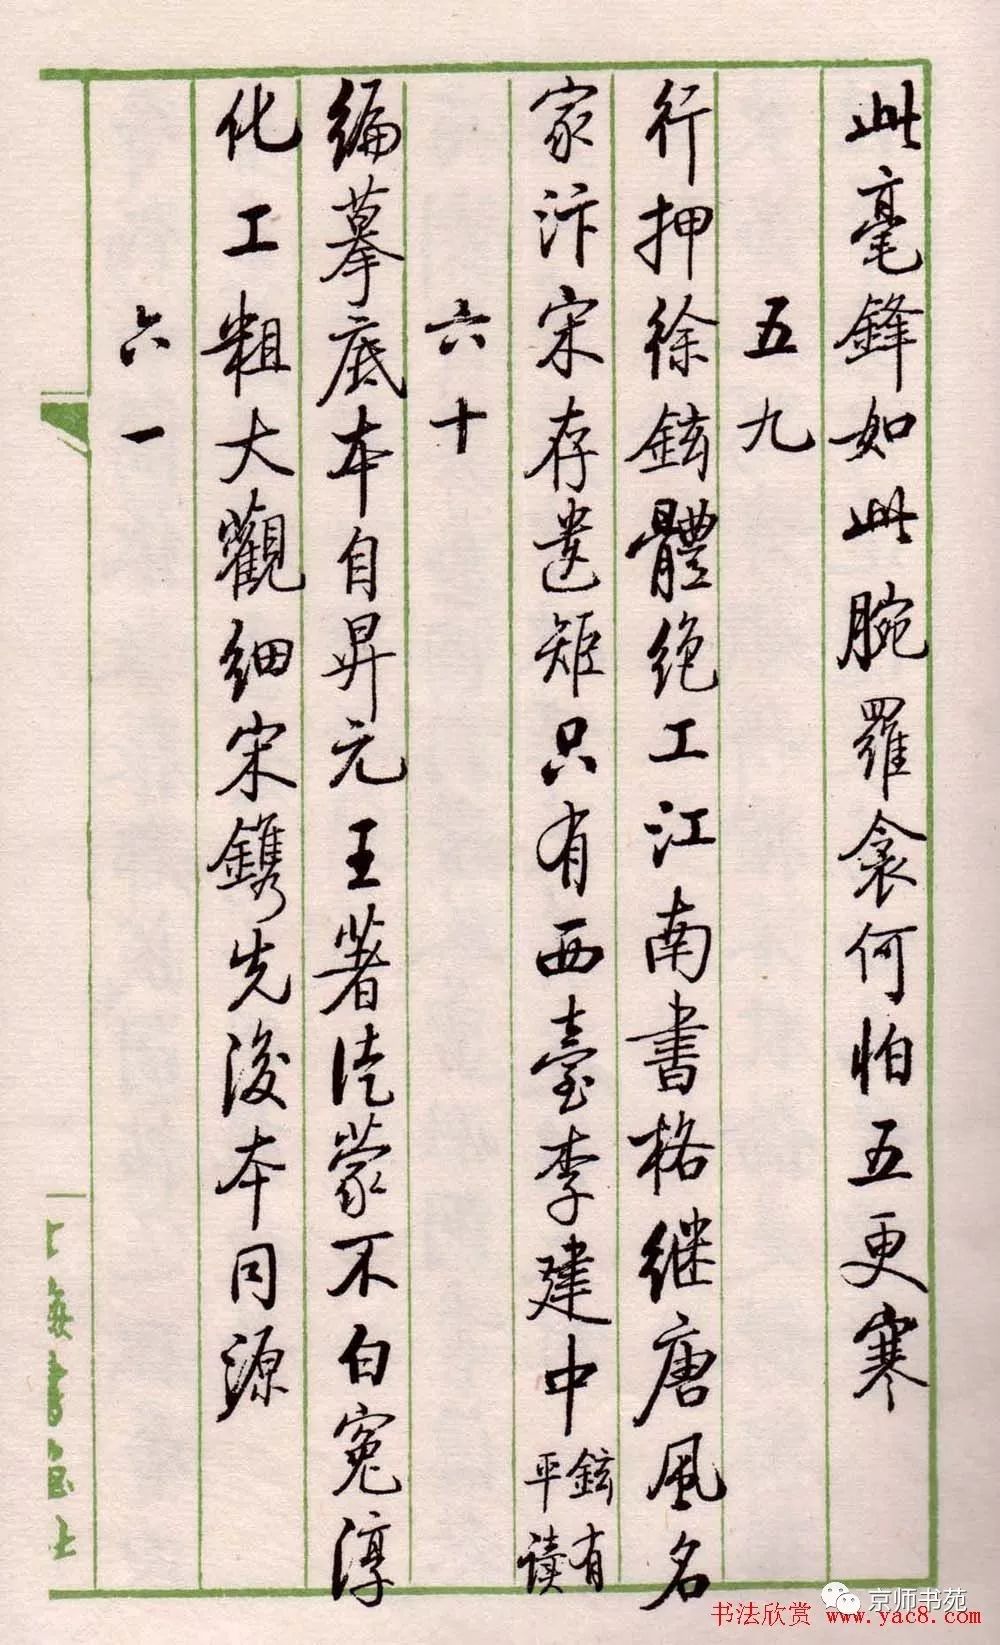 此毫鋒如此腕羅衾何怕五更寒
五九
行押徐鉉體绝工江南書格继唐風名
家汴宋存遗矩只有西臺李建中
鉉有
平读
六十
编摹底本自昇元王著徒蒙不白冤淳
化工粗大觀细宋鐫先後本同源
六一
京师书苑
书法欣赏 www.yac8.com